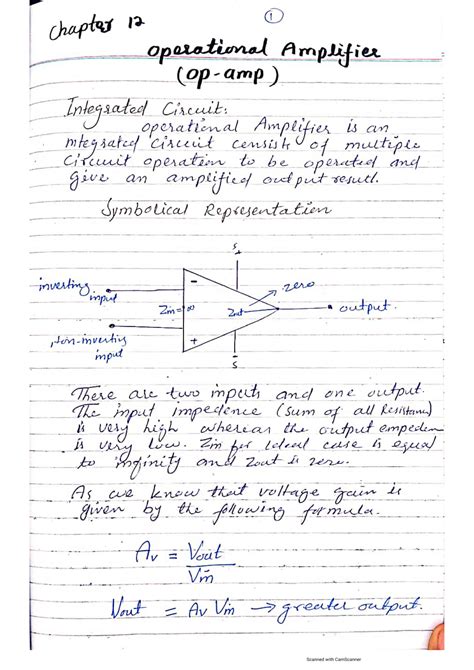 1
Chapter 12
operational Amplifier
(op-amp)
Integrated Circuit:
operational Amplifier is an
integrated circuit consist of multiple
Circuit operation to be operated and
give an amplified output result.
Symbolical Representation
S
+
inverting
input
-
Zin = ∞
Zout
zero
output
Non-inverting
input
+
-
S
There are two inputs and one output.
The input impedence (Sum of all Resistance)
is very high whereas the output empedence
is very low. Zin for Ideal case is equal
to infinity and Zout is zero.
As we know that voltage gain is
given by the following formula.
Av = Vout
Vin
Vout = Av Vin → greater output.
Scanned with CamScanner